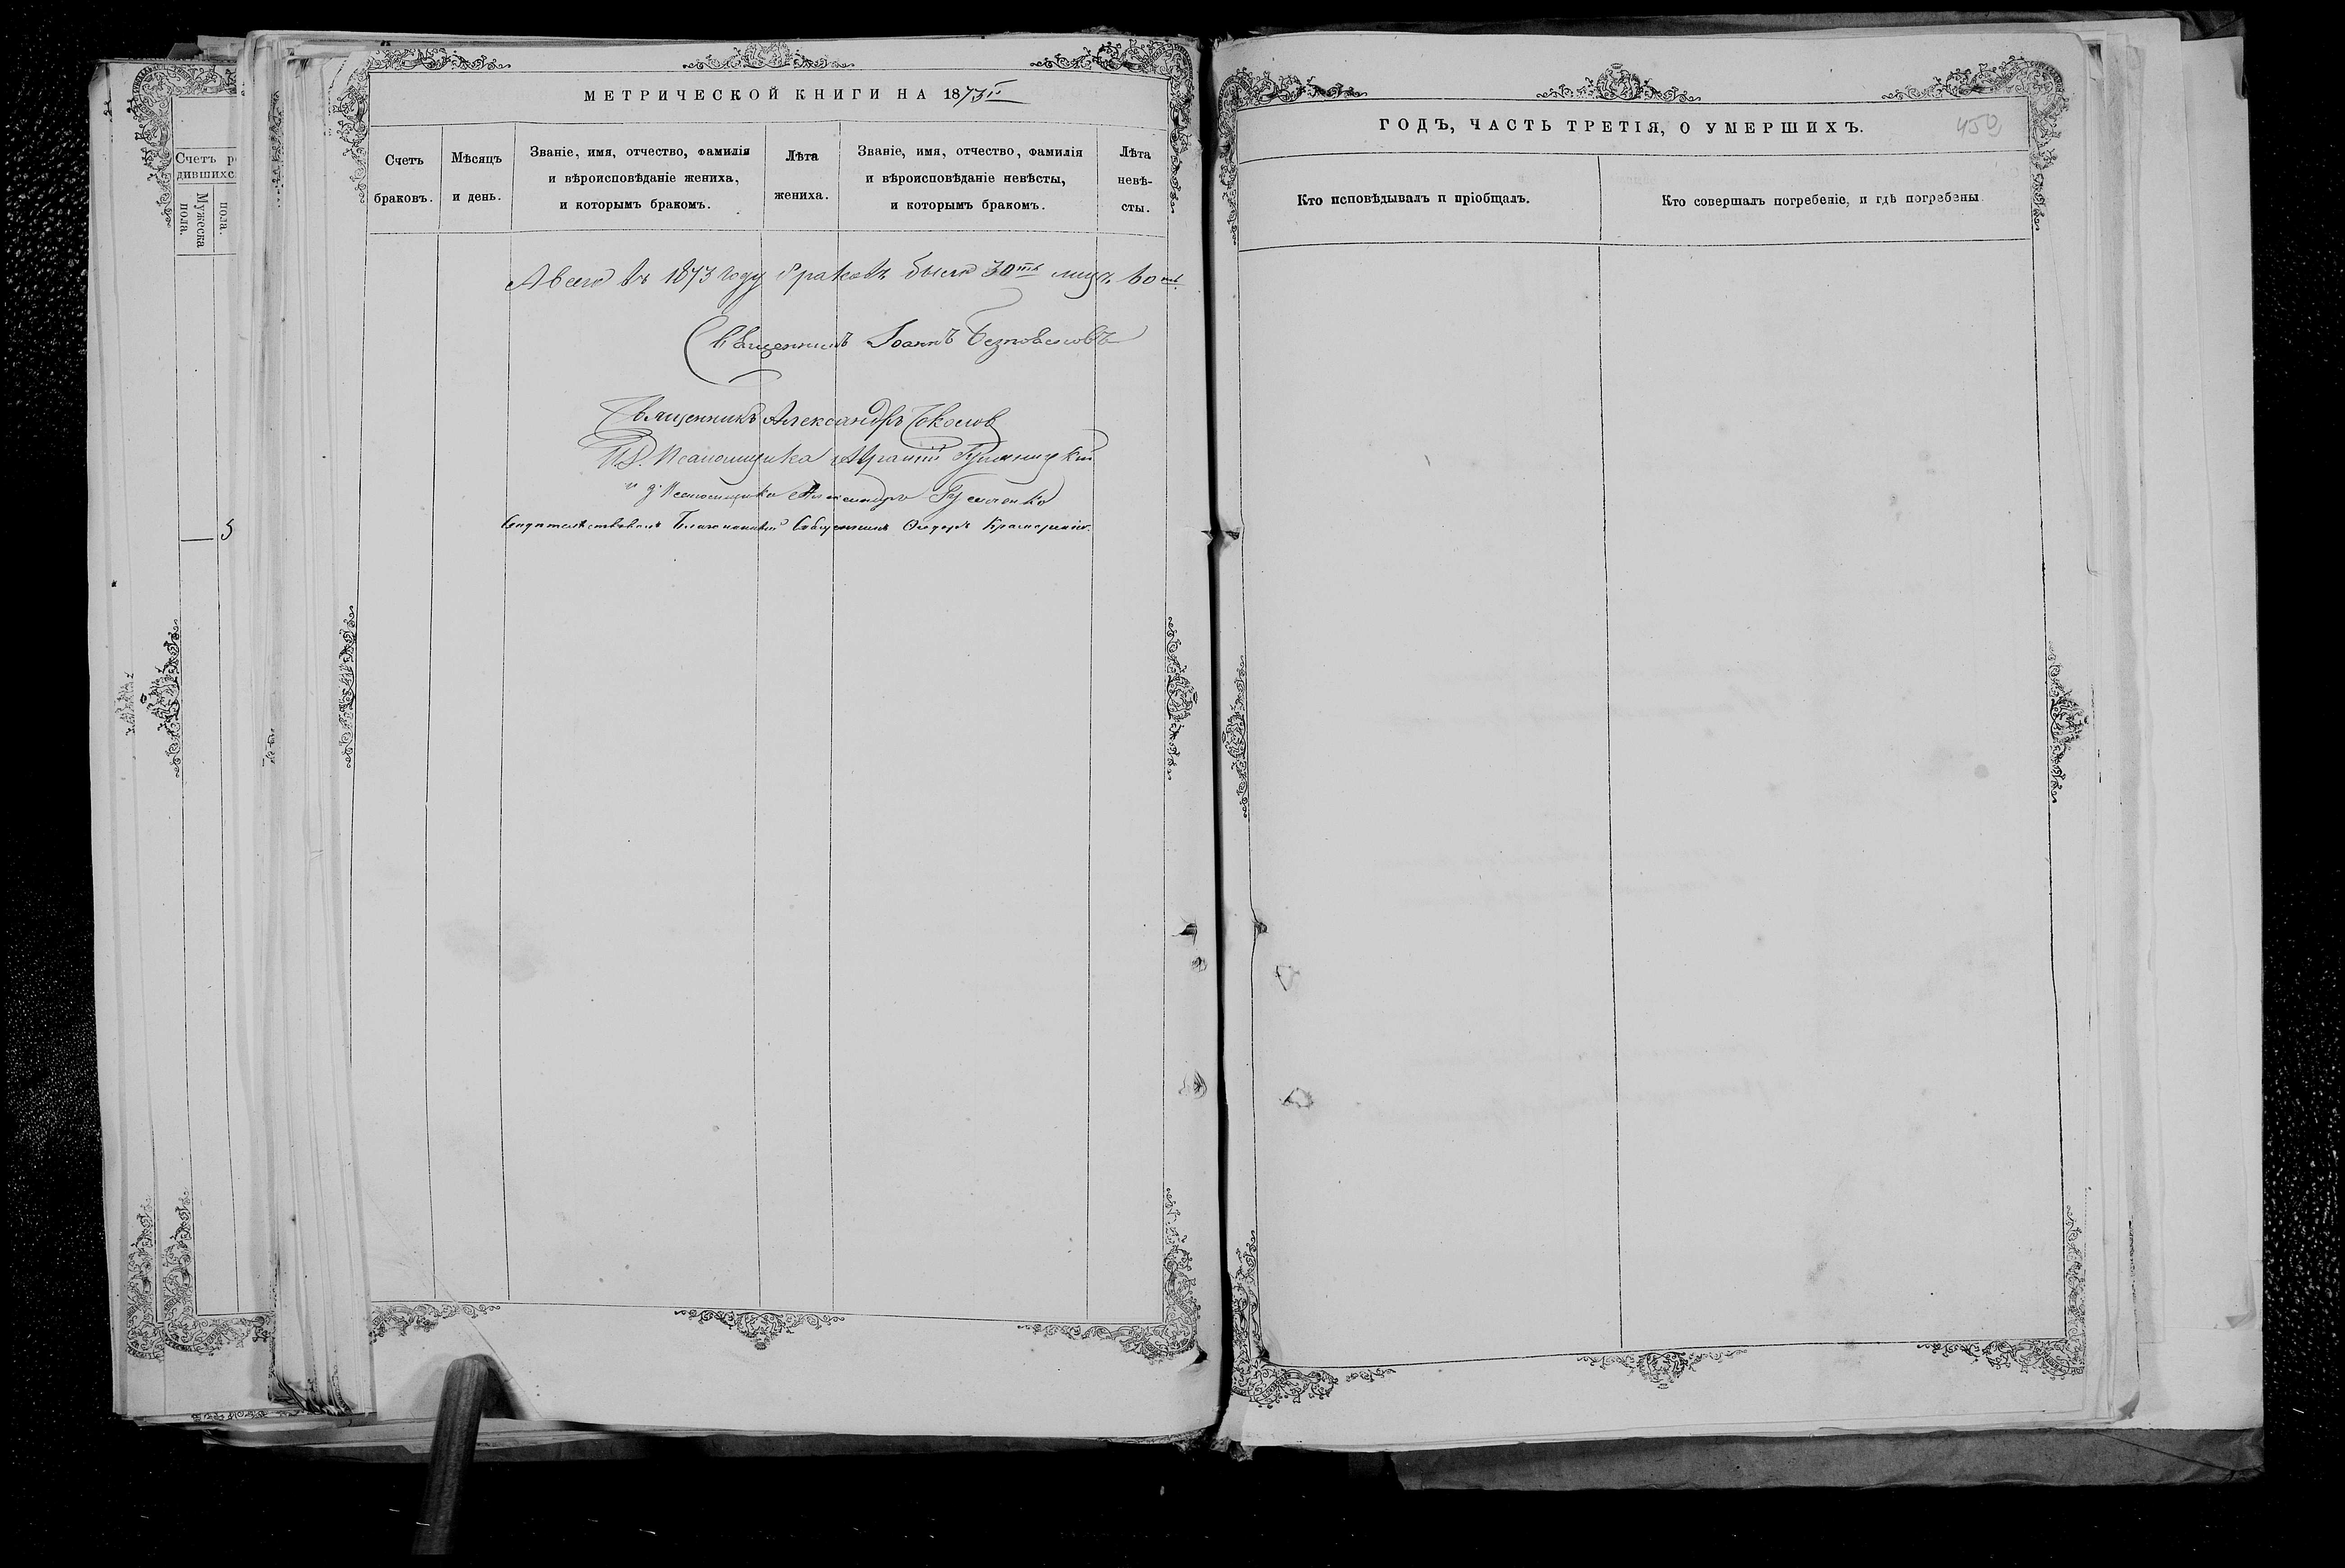 Счетъ
дившихс
Мужеска
пола.
пола.
5
МЕТРИЧЕСКОЙ КНИГИ НА 1873й
Счетъ браковъ.
Мѣсяцъ и день.
Званіе, имя, отчество, фамилія
и вѣроисповѣданіе жениха,
и которымъ бракомъ.
Лѣта жениха.
Званіе, имя, отчество, фамилія
и вѣроисповѣданіе невѣсты,
и которымъ бракомъ.
Лѣта
невѣ-
сты.
А всего въ 1873 году браковъ было 30ть лицъ 60тъ
Священникъ Іоаннъ
Священникъ Александръ Соколов
И.д. Псаломщика
и д. Псаломщика Александръ
Свидѣтельствовалъ Благочинный Священникъ Ѳеодоръ
ГОДЪ, ЧАСТЬ ТРЕТІЯ, О УМЕРШИХЪ.
450
Кто исповѣдывалъ и пріобщалъ.
Кто совершалъ погребеніе, и гдѣ погребены.